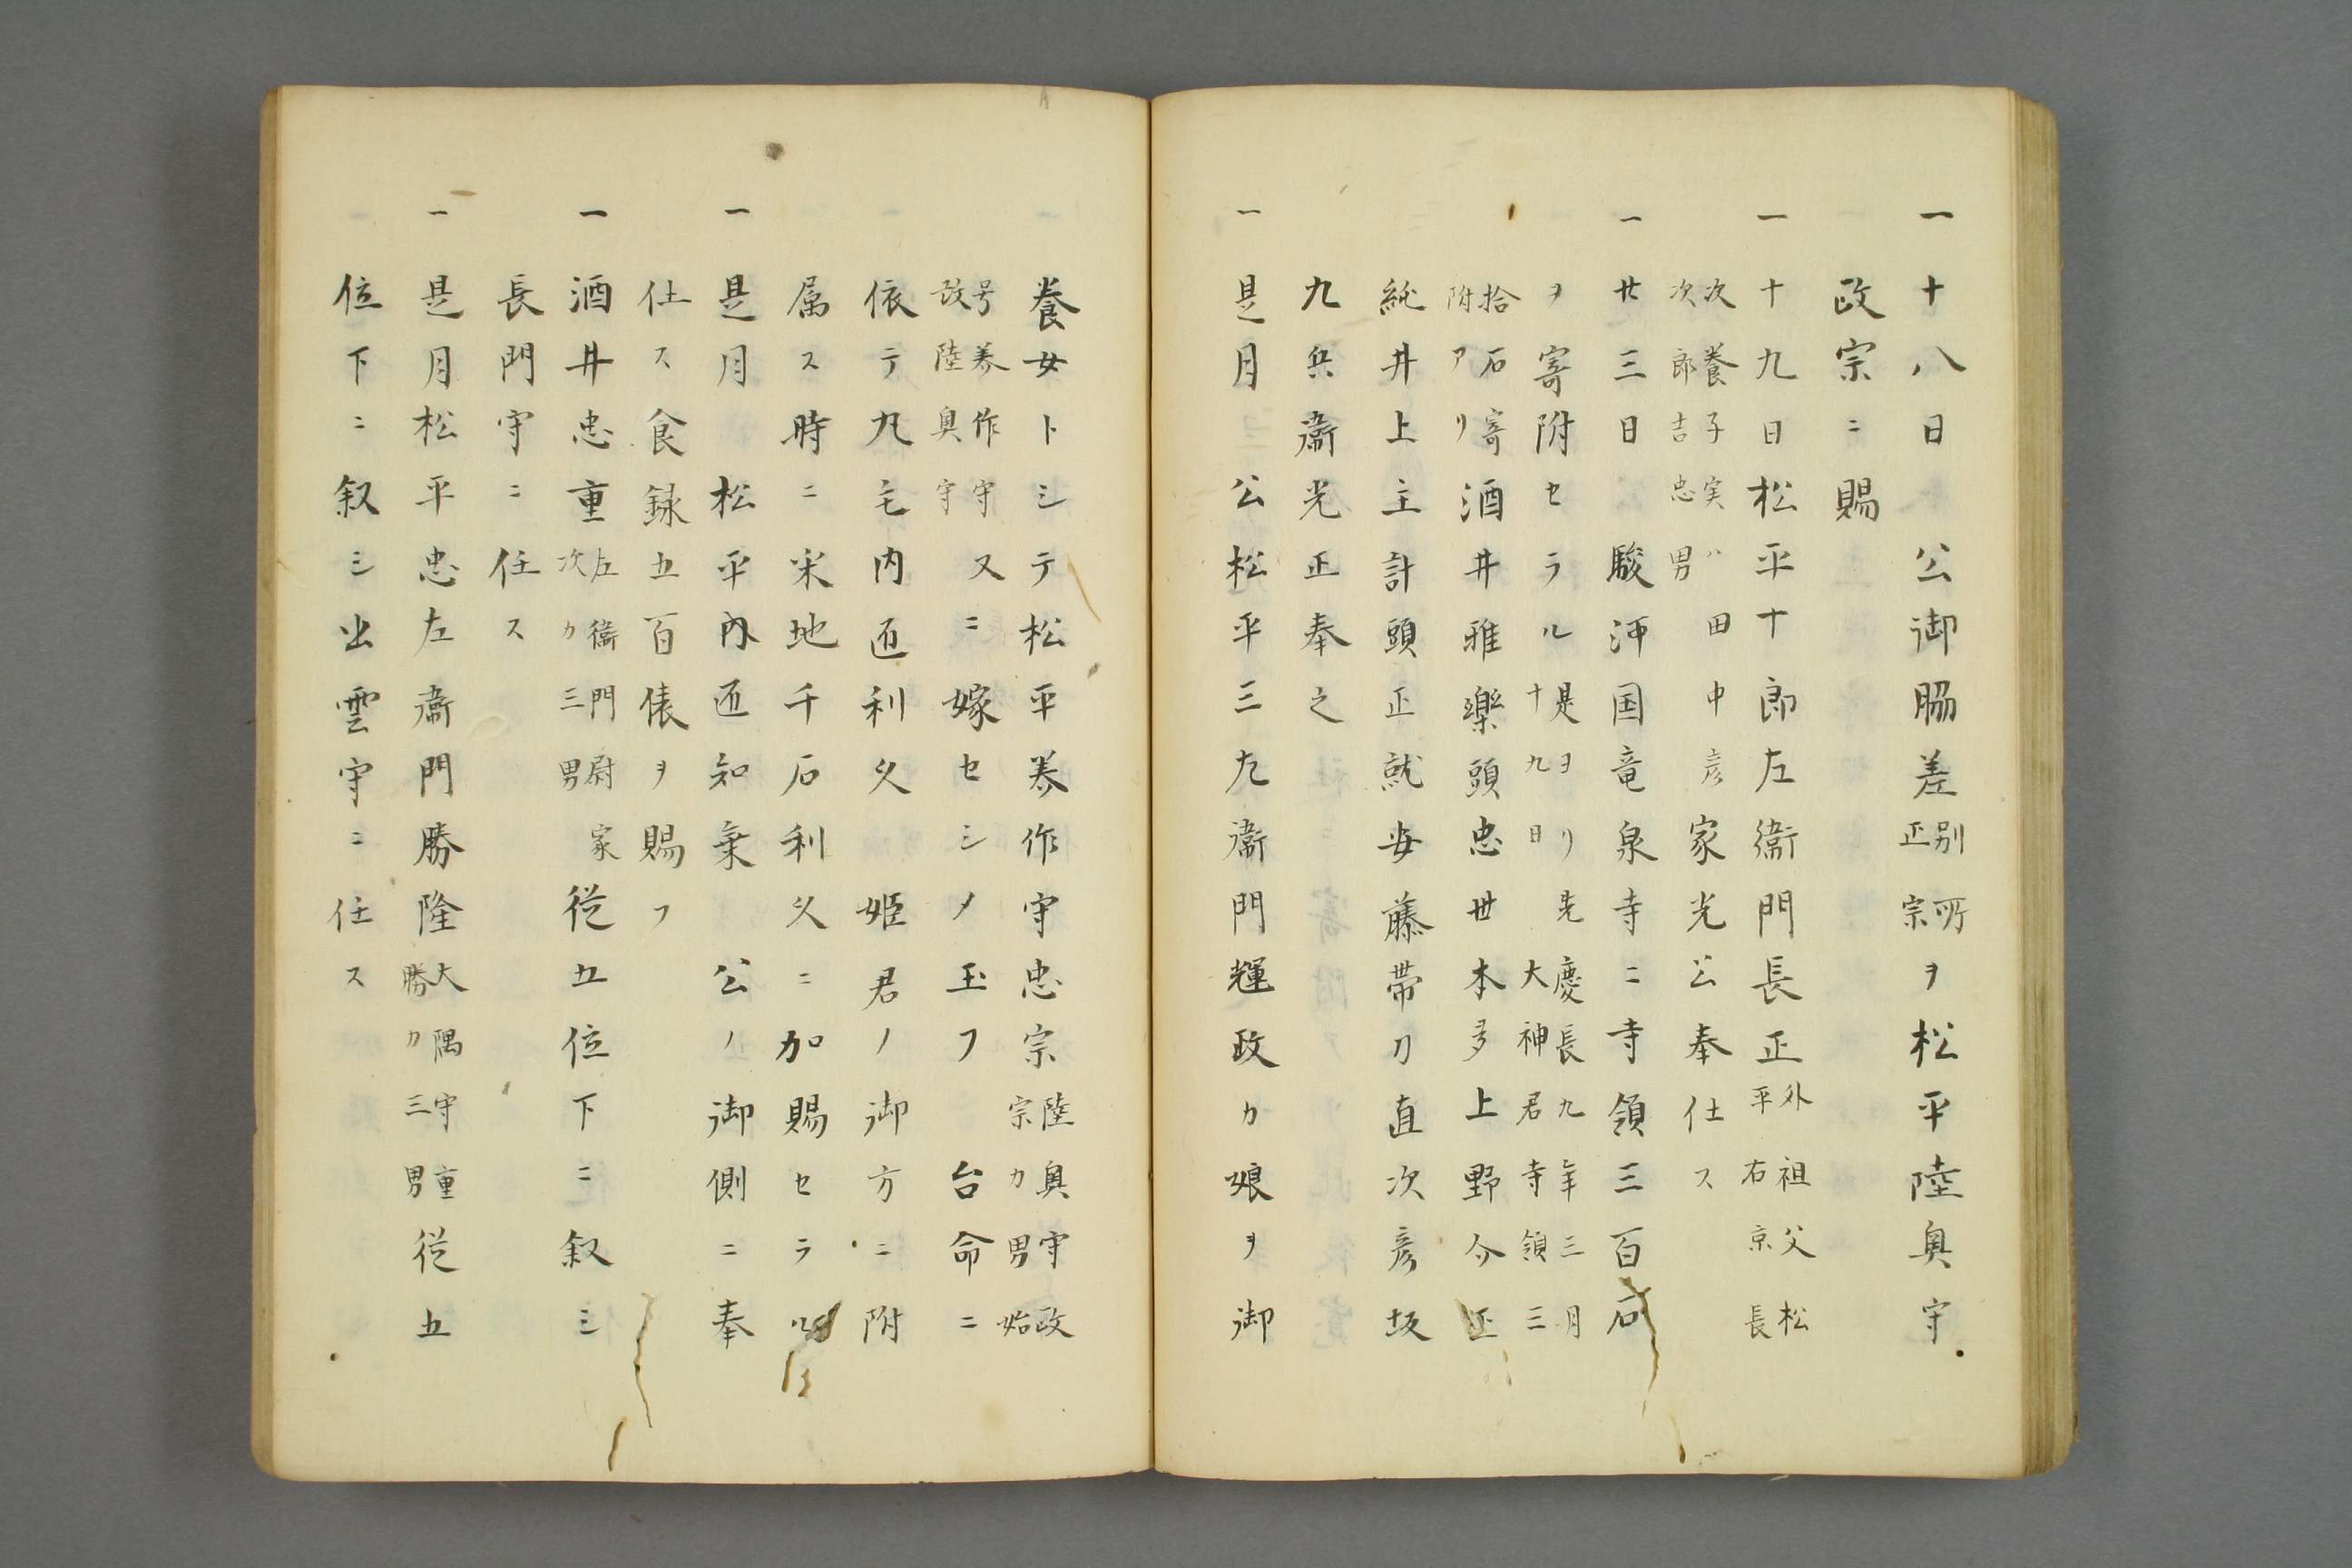 一 十八日 公御脇差別所正宗ヲ松平陸奥守
政宗ニ賜
一 十九日松平十郎左衞門長正外祖父松平右京長
次養子実ハ田中彦次郎吉忠男家光公奉仕ス
一 廿三日 駿河国竜泉寺ニ寺領三百石
ヲ寄附セラル是ヨリ先慶長九年三月十九日大神君寺領三
拾石寄附アリ酒井雅樂頭忠世本多上野介正
純井上主計頭正就安藤帯刀直次彦坂
九兵衞光正奉之
一 是月 公松平三左衞門輝政カ娘ヲ御
養女トシテ松平美作守忠宗陸奥守政宗カ男始
号美作守又改陸奥守ニ嫁セシメ玉フ 台命ニ
依テ九毛内匠利久 姫君ノ御方ニ附
属ス時ニ采地千石利久ニ加賜セラル
一 是月 松平内匠知乗 公ノ御側ニ奉
仕ス食録五百俵ヲ賜フ
一 酒井忠重左衞門尉家次カ三男従五位下ニ叙シ
長門守ニ任ス
一 是月松平忠左衞門勝隆大隅守重勝カ三男従五
位下ニ叙シ出雲守ニ任ス